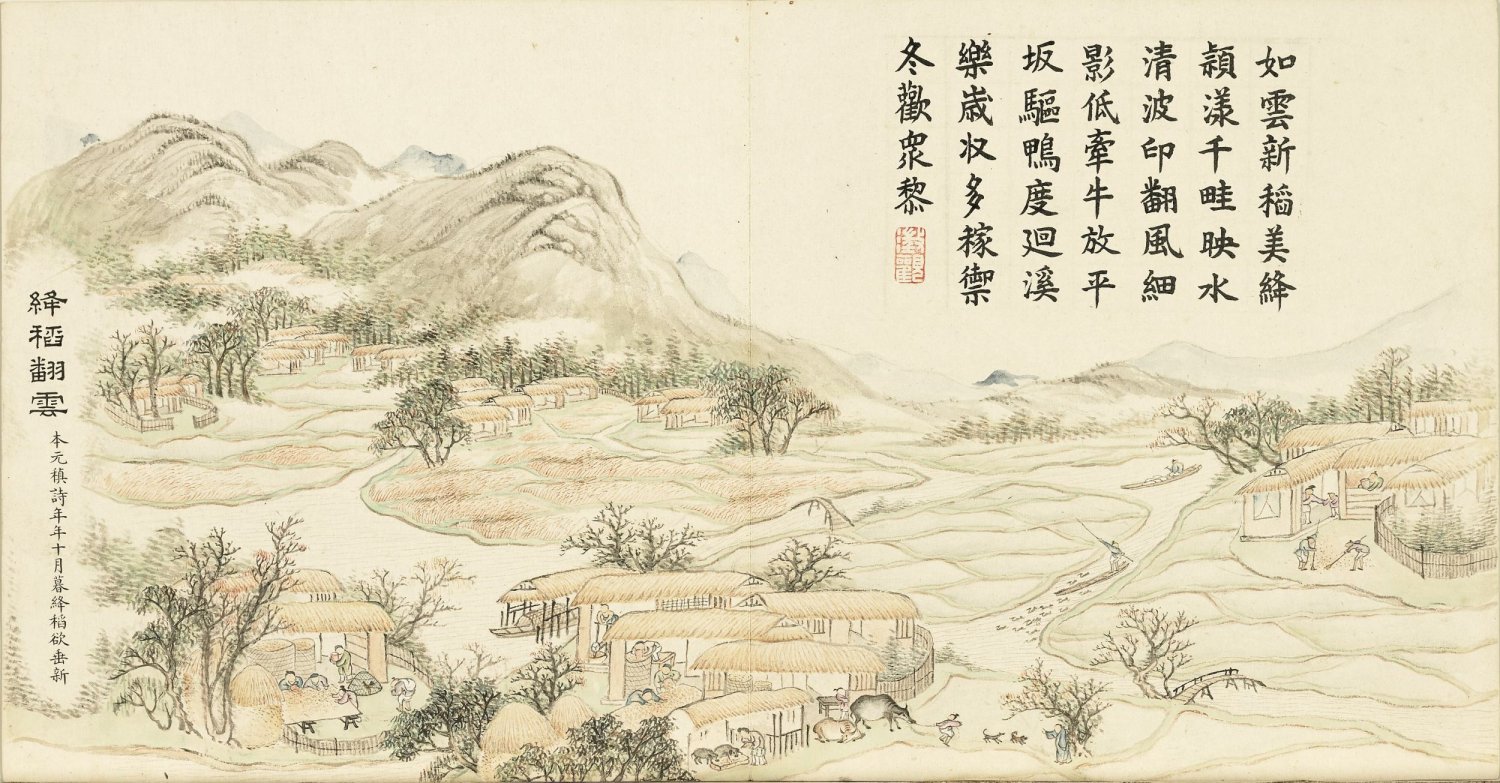 如雲新稻美絳
穎漾千畦映水
清波印翻風細
影低牽牛放平
坂驅鴨度迴溪
樂歲収多稼禦
冬歡眾黎
絳稻翻雲
本元稹詩年年十月暮絳稻欲垂新